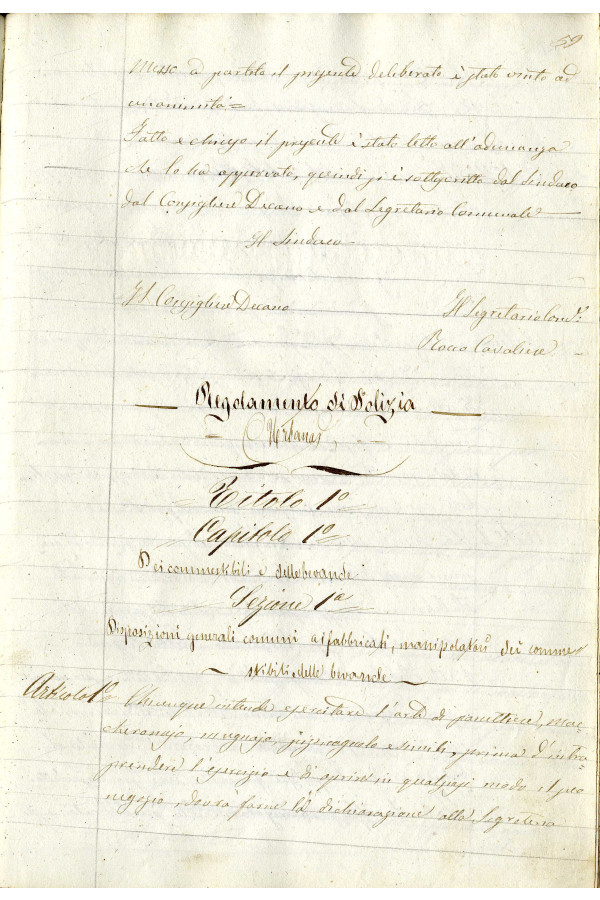 59
Messo a partito il presente deliberato è stato vinto ad
unanimità=
Fatto e chiuso il presente è stato letto all'adunanza
che lo ha approvato, quindi si è sottoscritto dal Sindaco
dal Consigliere Decano e dal Segretario Comunale
Il Sindaco
Il Consigliere Decano
Il Segretario Com.le
Rocco Cavaliere
Regolamento di Polizia
Urbana
Titolo 1º
Capitolo 1º
Dei commestibili e delle bevande
Sezione 1ª
Disposizioni generali comuni ai fabbricati, manipolatori dei comme
stibili delle bevande
Articolo 1º Chiunque intende esercitare l'arte di panettiere, mac
cheronajo, mugnajo, pizzicagnolo e simili, prima d'intra-
prendere l'esercizio e di aprire in qualsiasi modo il suo
negozio, dovrà farne la dichiarazione alla Segreteria